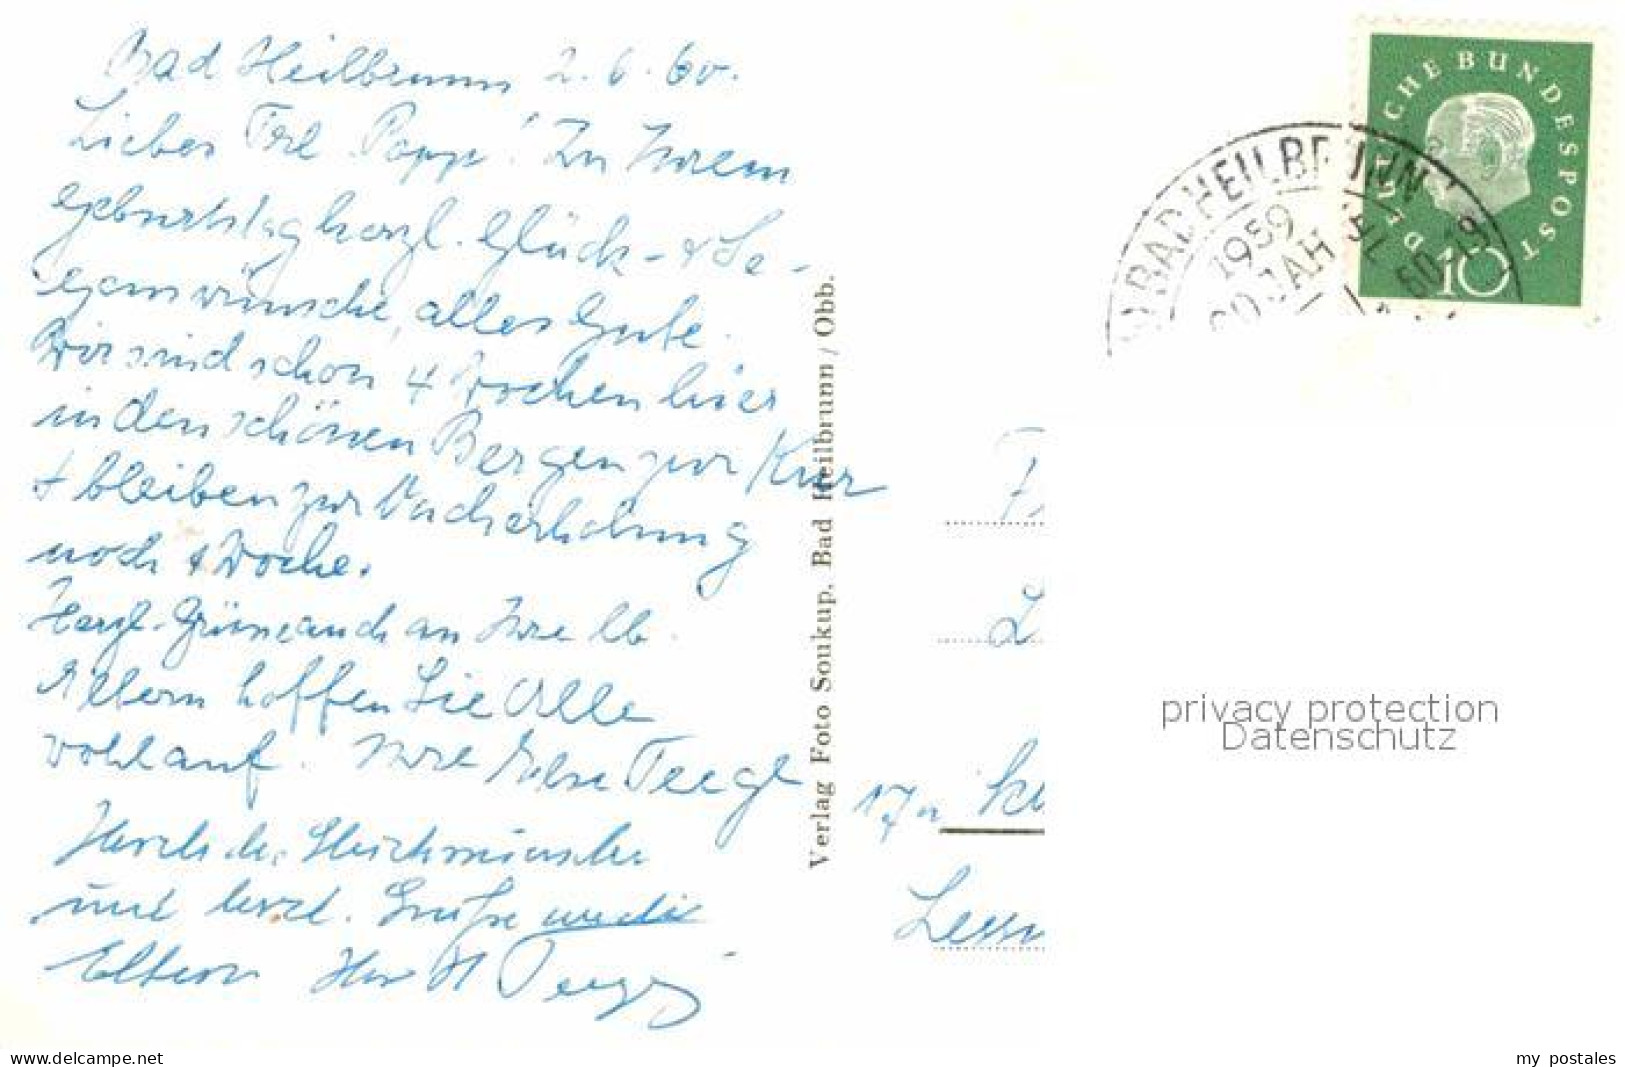 Bad Heilbrunn 2.6.60.
Liebes Frl. Popp! Zu Ihrem
Geburtstag herzl. Glück- & Se-
genswünsche, alles Gute.
Wir sind schon 4 Wochen hier
in den schönen Bergen zur Kur
+ bleiben zur Nacherholung
noch 1 Woche.
Herzl. Grüsse auch an Ihre lb.
Eltern hoffen Sie Alle
wohlauf. Ihre Teegt
Herzliche Glückwünsche
und herzl. Grüße an die
Eltern Ihr H
Verlag Foto Soukup, Bad Heilbrunn / Obb.
DEUTSCHE BUNDESPOST
10
BAD HEILBRUNN
1959
JAHR
60-18
17a
Lessn
privacy protection
Datenschutz
www.delcampe.net
my postales